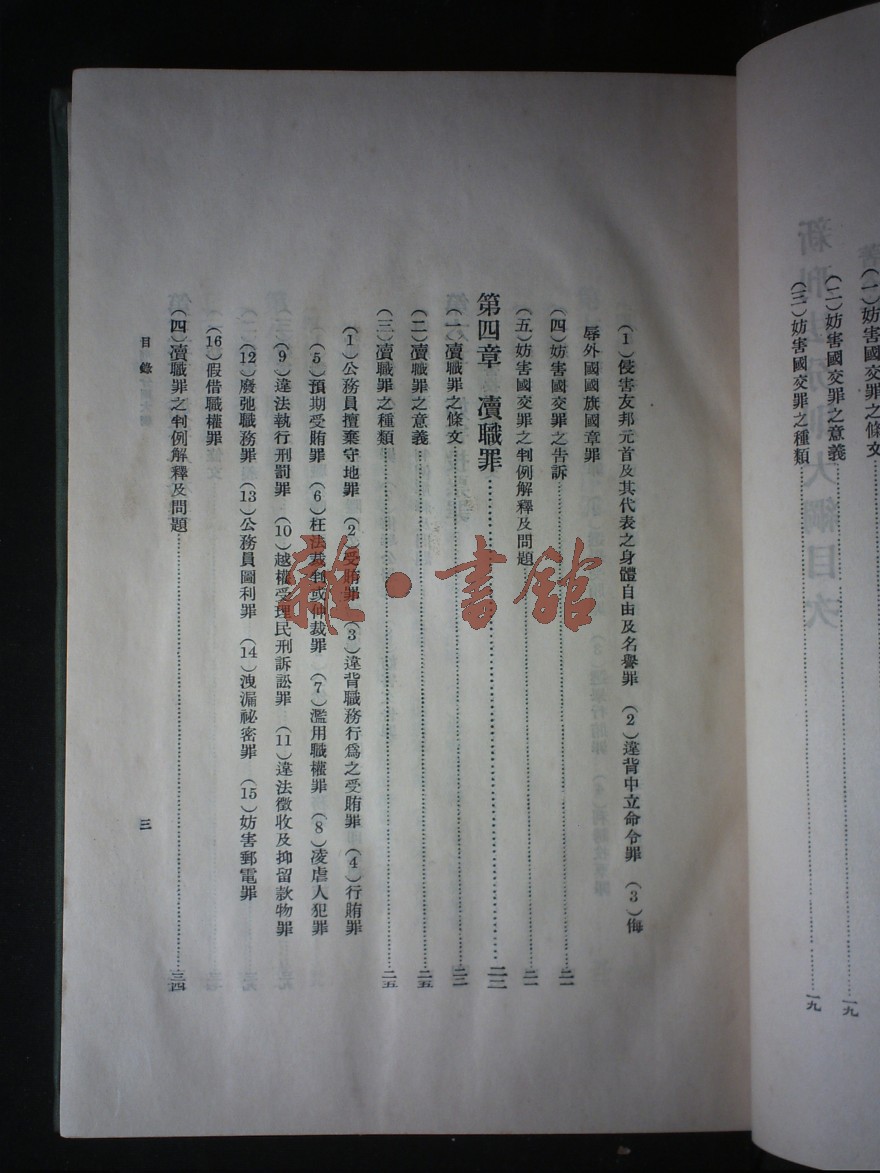 (一)妨害國交罪之條文
(二)妨害國交罪之意義……一九
(三)妨害國交罪之種類……一九
(1)侵害友邦元首及其代表之身體自由及名譽罪 (2)違背中立命令罪 (3)侮
辱外國國旗國章罪
(四)妨害國交罪之告訴……二一
(五)妨害國交罪之判例解釋及問題……二一
第四章 瀆職罪……二二
(一)瀆職罪之條文……二二
(二)瀆職罪之意義……二五
(三)瀆職罪之種類……二五
(1)公務員擅棄守地罪 (2)受賄罪 (3)違背職務行爲之受賄罪 (4)行賄罪
(5)預期受賄罪 (6)枉法裁判或仲裁罪 (7)濫用職權罪 (8)凌虐人犯罪
(9)違法執行刑罰罪 (10)越權受理民刑訴訟罪 (11)違法徵收及抑留款物罪
(12)廢弛職務罪 (13)公務員圖利罪 (14)洩漏祕密罪 (15)妨害郵電罪
(16)假借職權罪
(四)瀆職罪之判例解釋及問題……三四
目錄 三
雜·書館